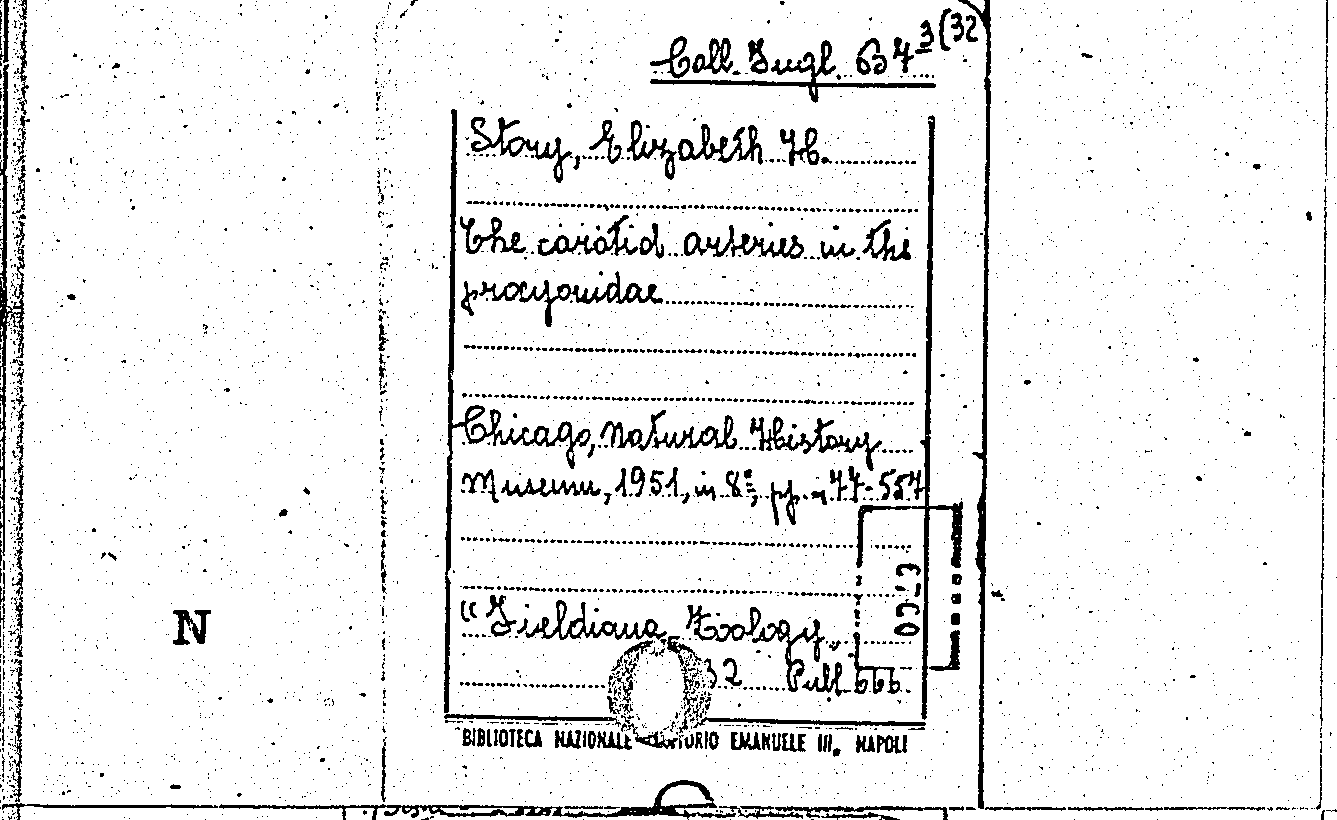 Coll. Ingl. 634 3(32
Story, Elizabeth H.
The carotid arteries in the
procyonidae
Chicago, Natural History
Museum, 1951, in 8°, pp. 477-557
"Fieldiana, Zoology,
32 Publ. 666.
N
BIBLIOTECA NAZIONALE VITTORIO EMANUELE III, NAPOLI